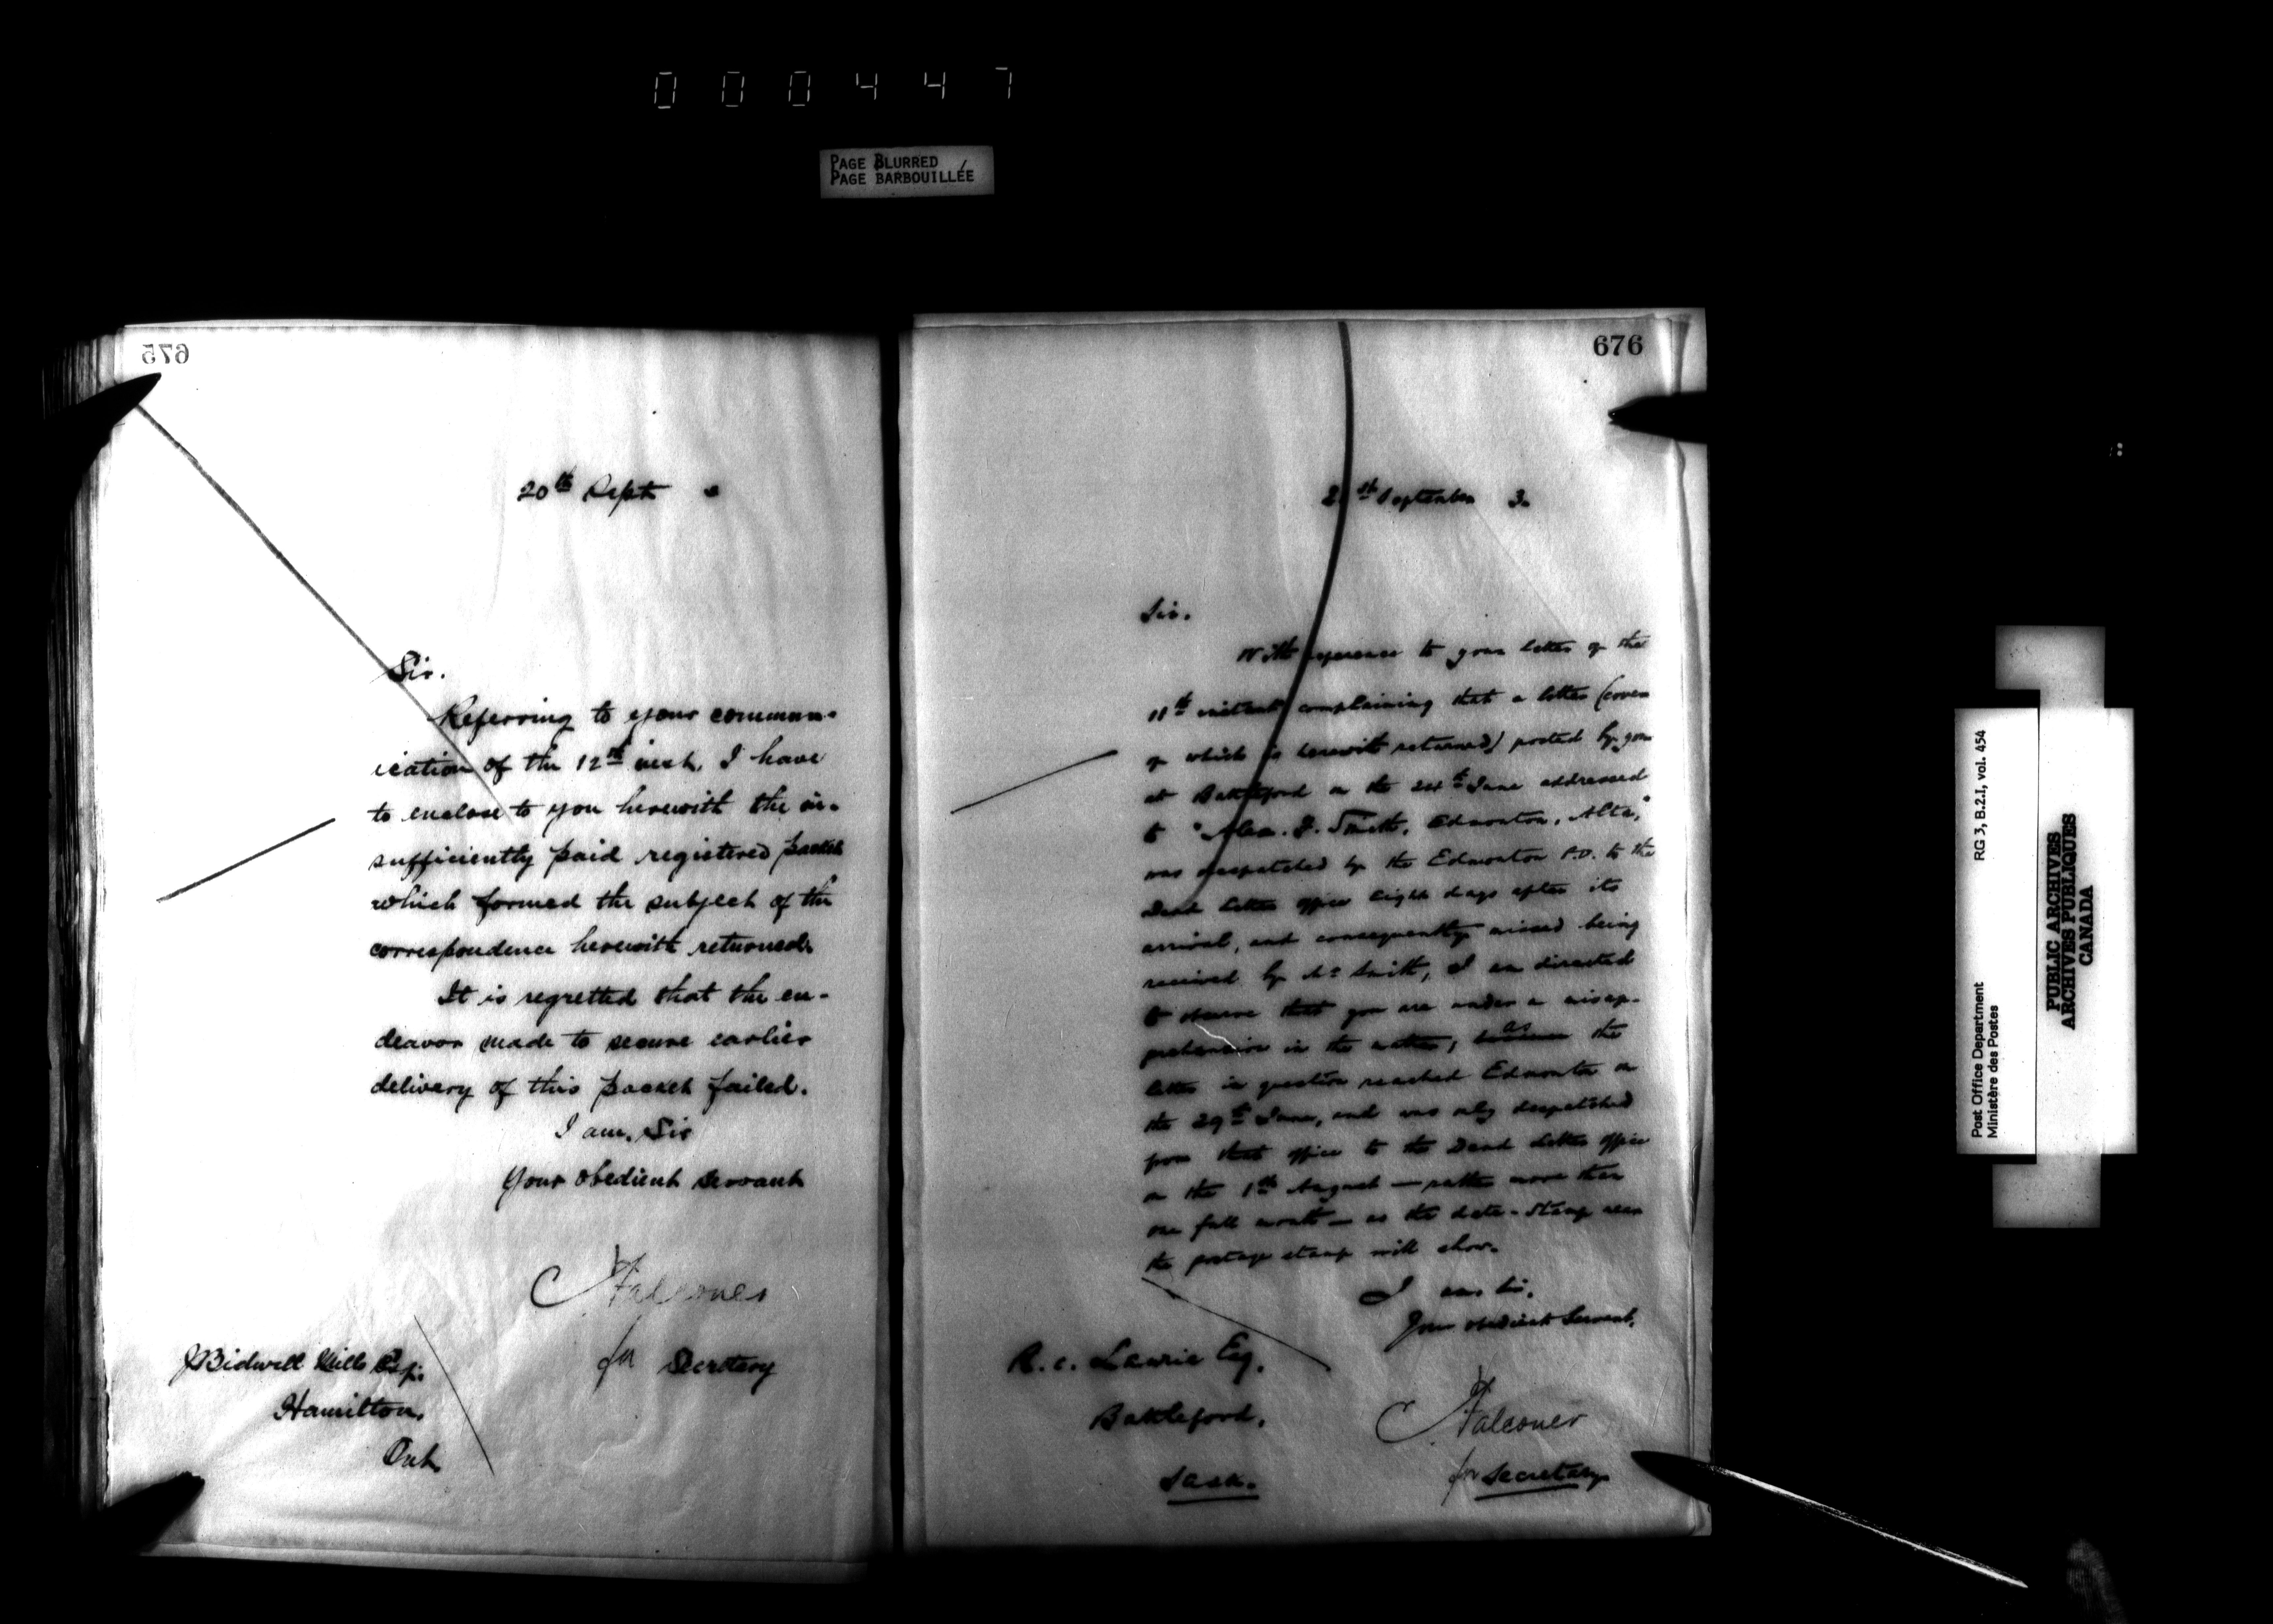 000447
PAGE BLURRED
PAGE BARBOUILLÉE
675
20th Sept
Sir.
Referring to your commun-
ication of the 12th inst. I have
to enclose to you herewith the in-
sufficiently paid registered packet
which formed the subject of the
correspondence herewith returned.
It is regretted that the en-
deavor made to secure earlier
delivery of this packet failed.
I am, Sir
Your obedient servant
Falconer
for Secretary
J Bidwell Mills Esq.
Hamilton,
Ont.
676
21st September 3.
Sir.
With reference to your letter of the
11th instant complaining that a letter (cover
of which is herewith returned) posted by you
at Battleford on the 24th June addressed
to "Alex. J. Smith, Edmonton, Alta,"
was despatched by the Edmonton P.O. to the
Dead Letter office eight days after its
arrival, and consequently missed being
received by Mr Smith, I am directed
to observe that you are under a misap-
prehension in the matter; as the
letter in question reached Edmonton on
the 29th June, and was only despatched
from that office to the Dead Letter office
on the 1st August — rather more than
one full month — as the date-stamp near
the postage stamp will show.
I am, Sir,
Your obedient Servant,
Falconer
for Secretary
R. C. Laurie Esq.
Battleford,
Sask.
Post Office Department
Ministère des Postes
RG 3, B.2.I, vol. 454
PUBLIC ARCHIVES
ARCHIVES PUBLIQUES
CANADA